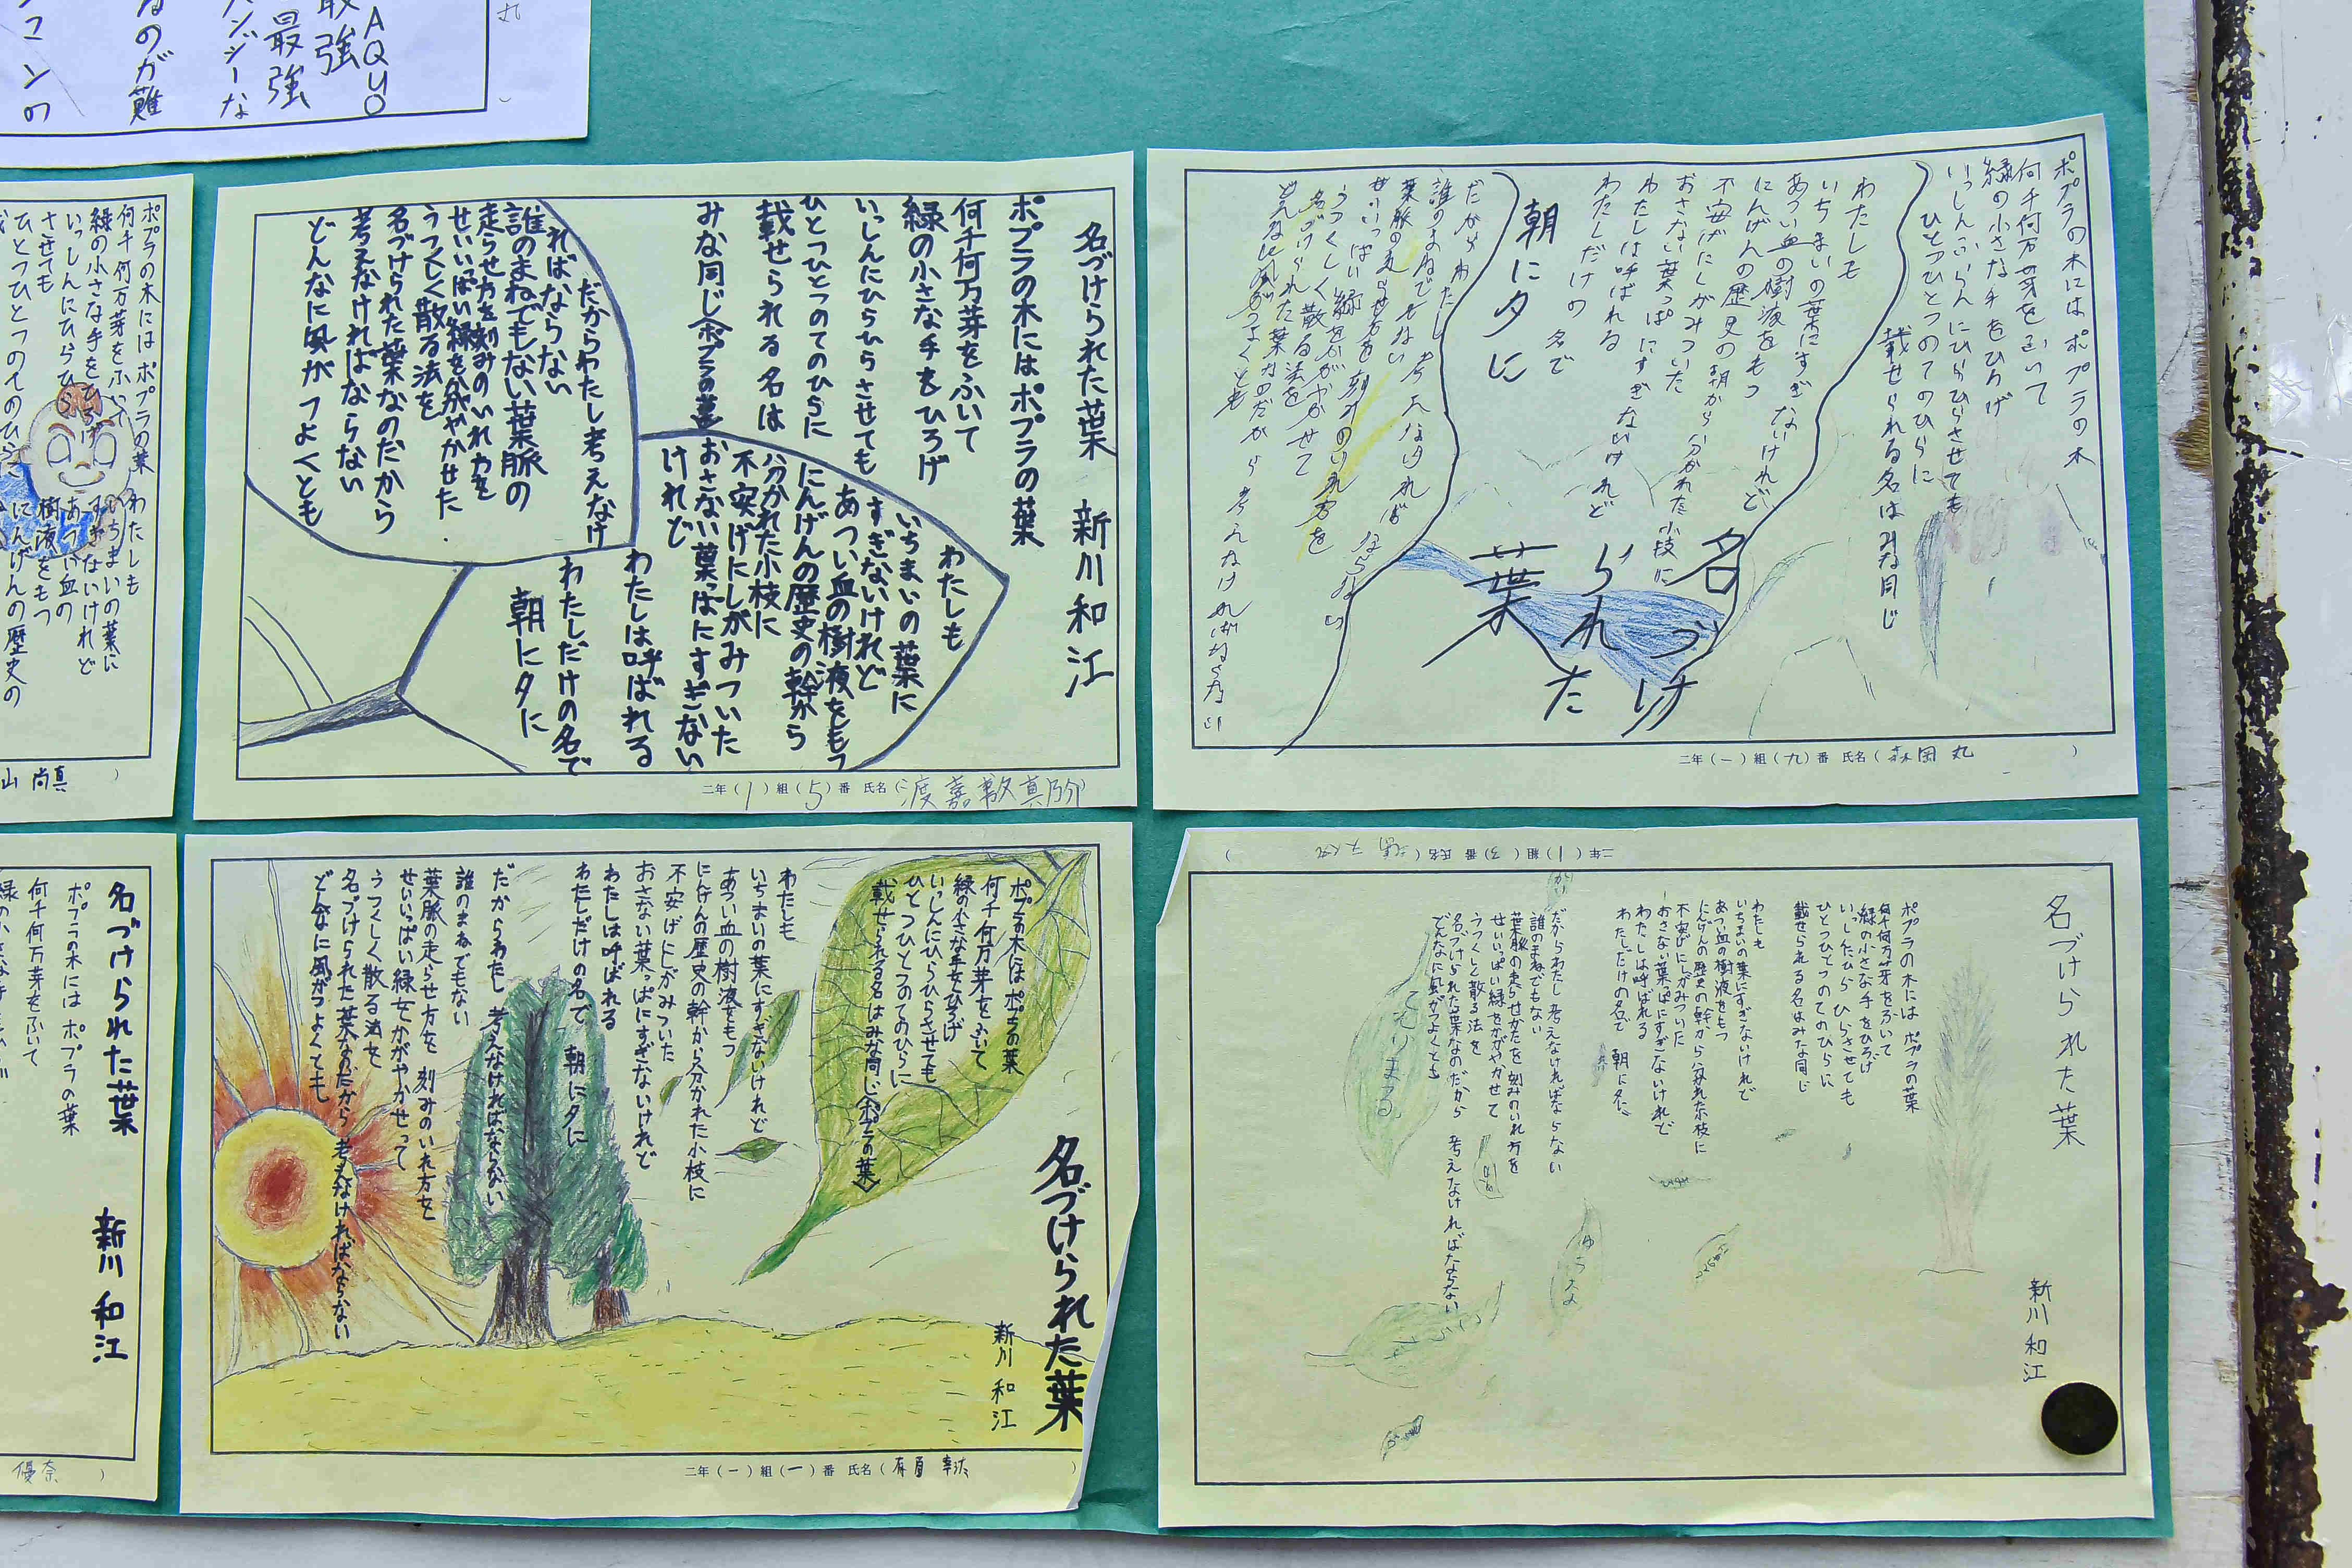 AQUO
最強
ンジーな
るのが難
コンの
名づけられた葉 新川和江
ポプラの木にはポプラの葉
何千何万芽をふいて
緑の小さな手をひろげ
いっしんにひらひらさせても
ひとつひとつのてのひらに
載せられる名は
みな同じ〈ポプラの葉〉
わたしも
いちまいの葉に
すぎないけれど
あつい血の樹液をもつ
にんげんの歴史の幹から
分かれた小枝に
不安げにしがみついた
おさない葉っぱにすぎない
けれど
わたしは呼ばれる
わたしだけの名で
朝に夕に
だからわたし考えなけ
ればならない
誰のまねでもない葉脈の
走らせ方を刻みのいれ方を
せいいっぱい緑をかがやかせた
うつくしく散る法を
名づけられた葉なのだから
考えなければならない
どんなに風がつよくとも
二年(1)組(5)番 氏名(渡嘉敷真
ポプラの木にはポプラの木
何千何万芽をふいて
緑の小さな手をひろげ
いっしんふらんにひらひらさせても
ひとつひとつのてのひらに
載せられる名はみな同じ
わたしも
いちまいの葉にすぎないけれど
あつい血の樹液をもつ
にんげんの歴史の朝から分かれた小枝に
不安げにしがみついた
おさない葉っぱにすぎないけれど
わたしは呼ばれる
わたしだけの 名で
朝に夕に
名づけ
られた
葉
だからわたし 考えなければ ならない
誰のまねでもない
葉脈の走らせ方を 刻みのいれ方を
せいいっぱい緑をかがやかせて
うつくしく散る法を
名づけられた葉なのだから考えなければならない
どんなに風がつよくとも
二年(一)組(九)番 氏名(森岡 丸 )
ポプラの木にはポプラの葉
何千何万芽をふいて
緑の小さな手をひろげ
いっしんにひらひら
させても
ひとつひとつのてのひらに
わたしも
いちまいの葉に
すぎないけれど
あつい血の
樹液をもつ
にんげんの歴史の
山 尚真 )
名づけられた葉
新川 和江
ポプラの木には ポプラの葉
何千何万芽をふいて
緑の小さな手をひろげ
優奈 )
名づけられた葉
新川 和江
ポプラの木にはポプラの葉
何千何万芽をふいて
緑の小さな手をひろげ
いっしんにひらひらさせても
ひとつひとつのてのひらに
載せられる名はみな同じ〈ポプラの葉〉
わたしも
いちまいの葉にすぎないけれど
あつい血の樹液をもつ
にんげんの歴史の幹から分かれた小枝に
不安げにしがみついた
おさない葉っぱにすぎないけれど
わたしは呼ばれる
わたしだけの名で 朝に夕に
だからわたし 考えなければならない
誰のまねでもない
葉脈の走らせ方を 刻みのいれ方を
せいいっぱい緑をかがやかせって
うつくしく散る法を
名づけられた葉なのだから 考えなければならない
どんなに風がつよくとも
二年(一)組(一)番 氏名(
名づけられた葉
新川 和江
ポプラの木には ポプラの葉
何千何万芽をふいて
緑の小さな手をひろげ
いっしんにひらひらさせても
ひとつひとつのてのひらに
載せられる名はみな同じ
わたしも
いちまいの葉にすぎないけれど
あつい血の樹液をもつ
にんげんの歴史の幹から分かれた小枝に
不安げにしがみついた
おさない葉っぱにすぎないけれど
わたしは呼ばれる
わたしだけの名で 朝に夕に
だからわたし 考えなければならない
誰のまねでもない
葉脈の走らせかたを 刻みのいれ方を
せいいっぱい緑をかがやかせて
うつくしく散る法を
名づけられた葉なのだから 考えなければならない
どんなに風がつよくとも
てんりまる
ゆうな
二年(1)組(3)番 氏名(